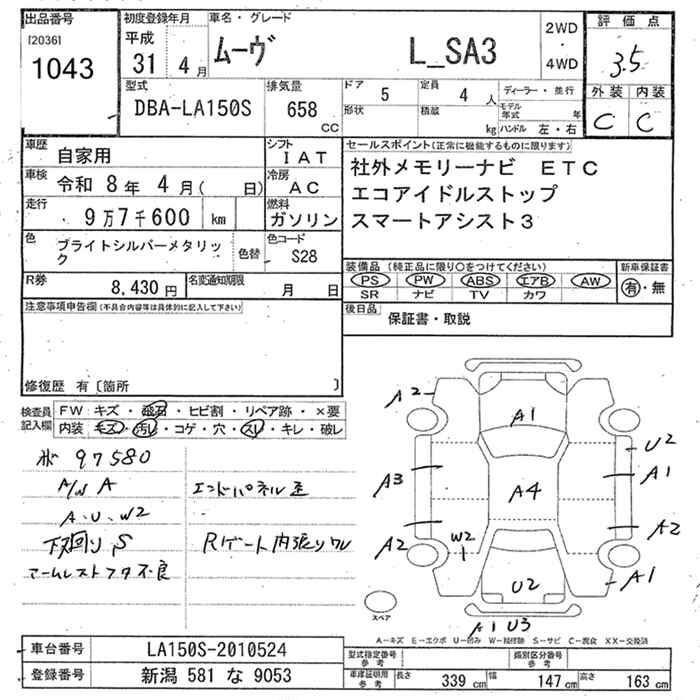 出品番号
[2036]
1043
初度登録年月
平成
31 4月
車名・グレード
ムーヴ L_SA3
2WD
・
4WD
評価点
3.5
外装 内装
C C
型式
DBA-LA150S
排気量
658 CC
ドア 5
形状
定員 4 人
積載 kg
ディーラー・並行
モデル年式 年
ハンドル 左・右
車歴 自家用
シフト IAT
車検 令和 8年 4月( 日)
冷房 AC
走行 9万7千600 km
燃料 ガソリン
色 ブライトシルバーメタリック
色替
色コード S28
R券 8,430円
名変通知期限 月 日
セールスポイント(正常に機能するものに限ります)
社外メモリーナビ ETC
エコアイドルストップ
スマートアシスト3
装備品(純正品に限り○をつけてください)
PS PW ABS エアB AW
SR ナビ TV カワ
新車保証書
有・無
後日品 保証書・取説
注意事項申告欄(不具合内容等は具体的に記入して下さい)
修復歴 有〔箇所 〕
検査員記入欄
FW キズ・飛石・ヒビ割・リペア跡・×要
内装 キズ・汚レ・コゲ・穴・スレ・キレ・破レ
97580
A/W A
A.U.W2
下回りS
アームレストフタ不良
エンドパネル歪
Rゲート内張りワレ
A2
A1
U2
A3
A1
A4
A2
W2
A2
U2
A1
A1 U3
スペア
A-キズ E-エクボ U-凹み W-補修跡 S-サビ C-腐食 XX-交換済
車台番号 LA150S-2010524
登録番号 新潟 581 な 9053
型式指定番号 参考
類別区分番号 参考
車庫証明用 参考
長さ 339 cm
幅 147 cm
高さ 163 cm